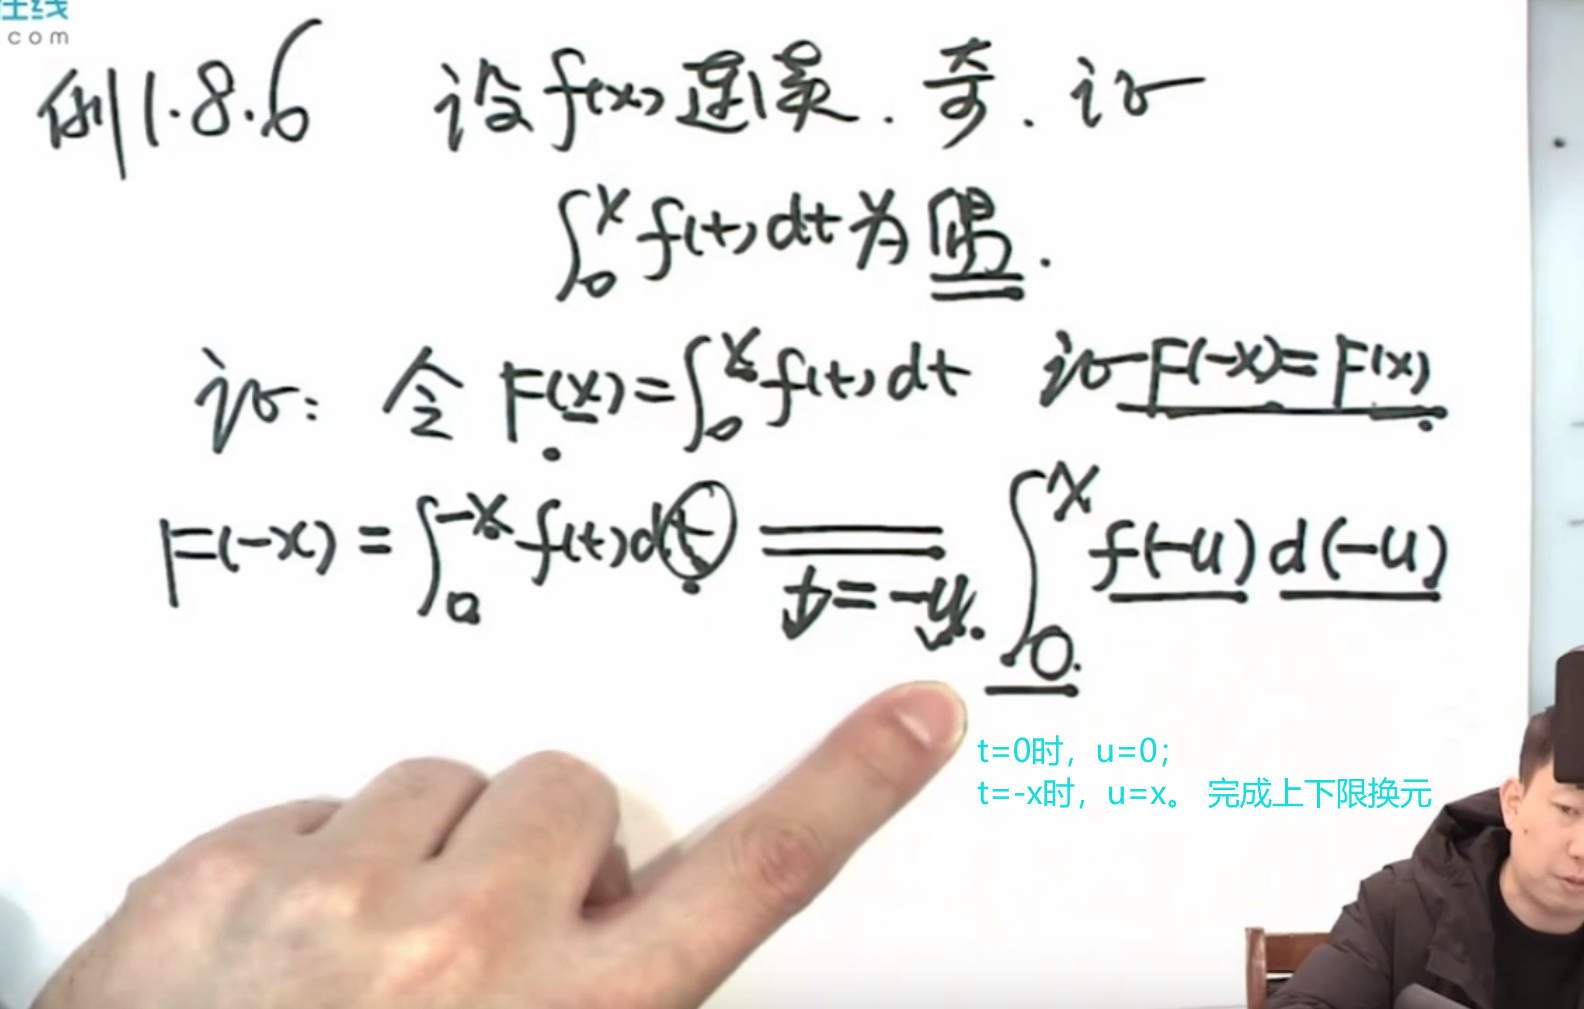 在线
.com
例1.8.6 设f(x)连续.奇.证
∫₀ˣ f(t)dt为偶.
证: 令 F(x)=∫₀ˣ f(t)dt 证F(-x)=F(x)
F(-x)=∫₀⁻ˣ f(t)dt ══ t=-u. ∫₀ˣ f(-u)d(-u)
t=0时，u=0；
t=-x时，u=x。 完成上下限换元